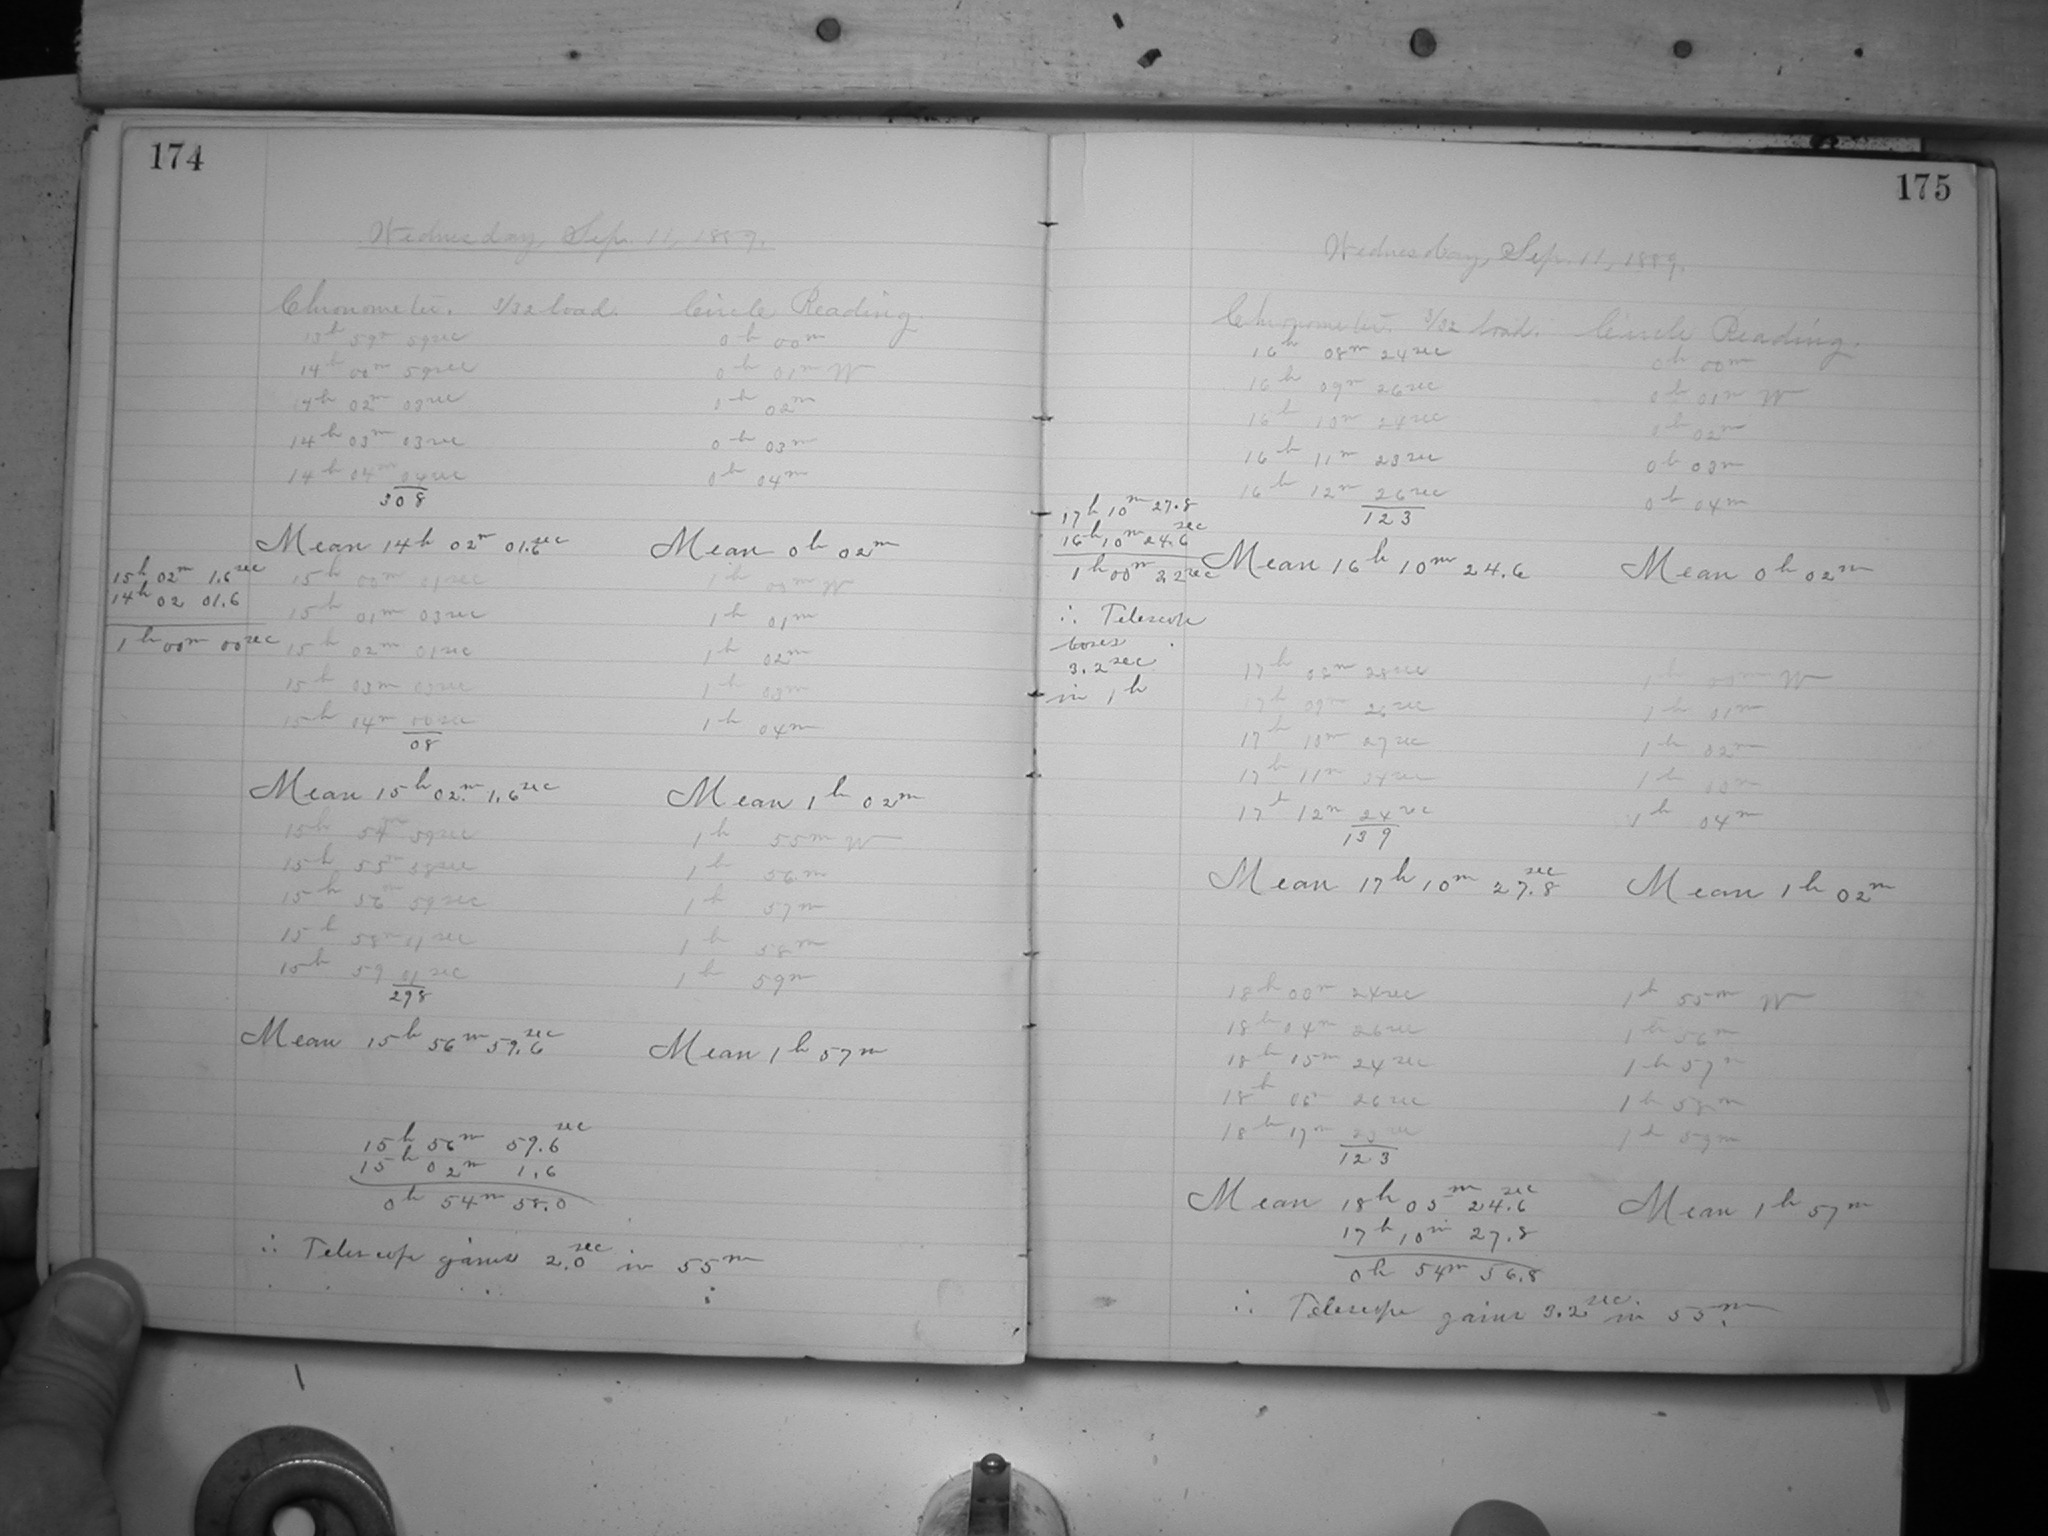 174
Wednesday, Sep. 11, 1889.
Chronometer. 3/32 load. Circle Reading.
13h 59m 59sec 0h 00m
14h 00m 59sec 0h 01m W
14h 02m 03sec 0h 02m
14h 03m 03sec 0h 03m
14h 04m 04sec 0h 04m
308
Mean 14h 02m 01.6sec Mean 0h 02m
15h 02m 1.6sec
14h 02 01.6
1h 00m 00sec
15h 00m 01sec 1h 00m W
15h 01m 03sec 1h 01m
15h 02m 01sec 1h 02m
15h 03m 03sec 1h 03m
15h 04m 00sec 1h 04m
08
Mean 15h 02m 1.6sec Mean 1h 02m
15h 54m 59sec 1h 55m W
15h 55m 58sec 1h 56m
15h 56m 59sec 1h 57m
15h 58m 11sec 1h 58m
15h 59 01sec 1h 59m
298
Mean 15h 56m 59.6sec Mean 1h 57m
15h 56m 59.6sec
15h 02m 1.6
0h 54m 58.0
∴ Telescope gains 2.0sec in 55m
175
Wednesday, Sep. 11, 1889.
Chronometer. 3/32 load. Circle Reading.
16h 08m 24sec 0h 00m
16h 09m 26sec 0h 01m W
16h 10m 24sec 0h 02m
16h 11m 23sec 0h 03m
16h 12m 26sec 0h 04m
123
17h 10m 27.8
16h 10m 24.6sec
1h 00m 22sec
Mean 16h 10m 24.6 Mean 0h 02m
∴ Telescope
loses
3.2sec
in 1h
17h 02m 28sec 1h 00m W
17h 09m 26sec 1h 01m
17h 10m 27sec 1h 02m
17h 11m 34sec 1h 03m
17h 12m 24sec 1h 04m
139
Mean 17h 10m 27.8sec Mean 1h 02m
18h 00m 24sec 1h 55m W
18h 04m 26sec 1h 56m
18h 15m 24sec 1h 57m
18h 06m 26sec 1h 58m
18h 17m 23sec 1h 59m
123
Mean 18h 05m 24.6sec Mean 1h 57m
17h 10m 27.8
0h 54m 56.8
∴ Telescope gains 3.2sec. in 55m.